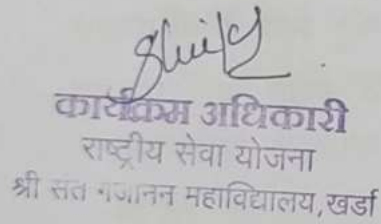 कार्यक्रम अधिकारी
राष्ट्रीय सेवा योजना
श्री संत गजानन महाविद्यालय, खर्डा